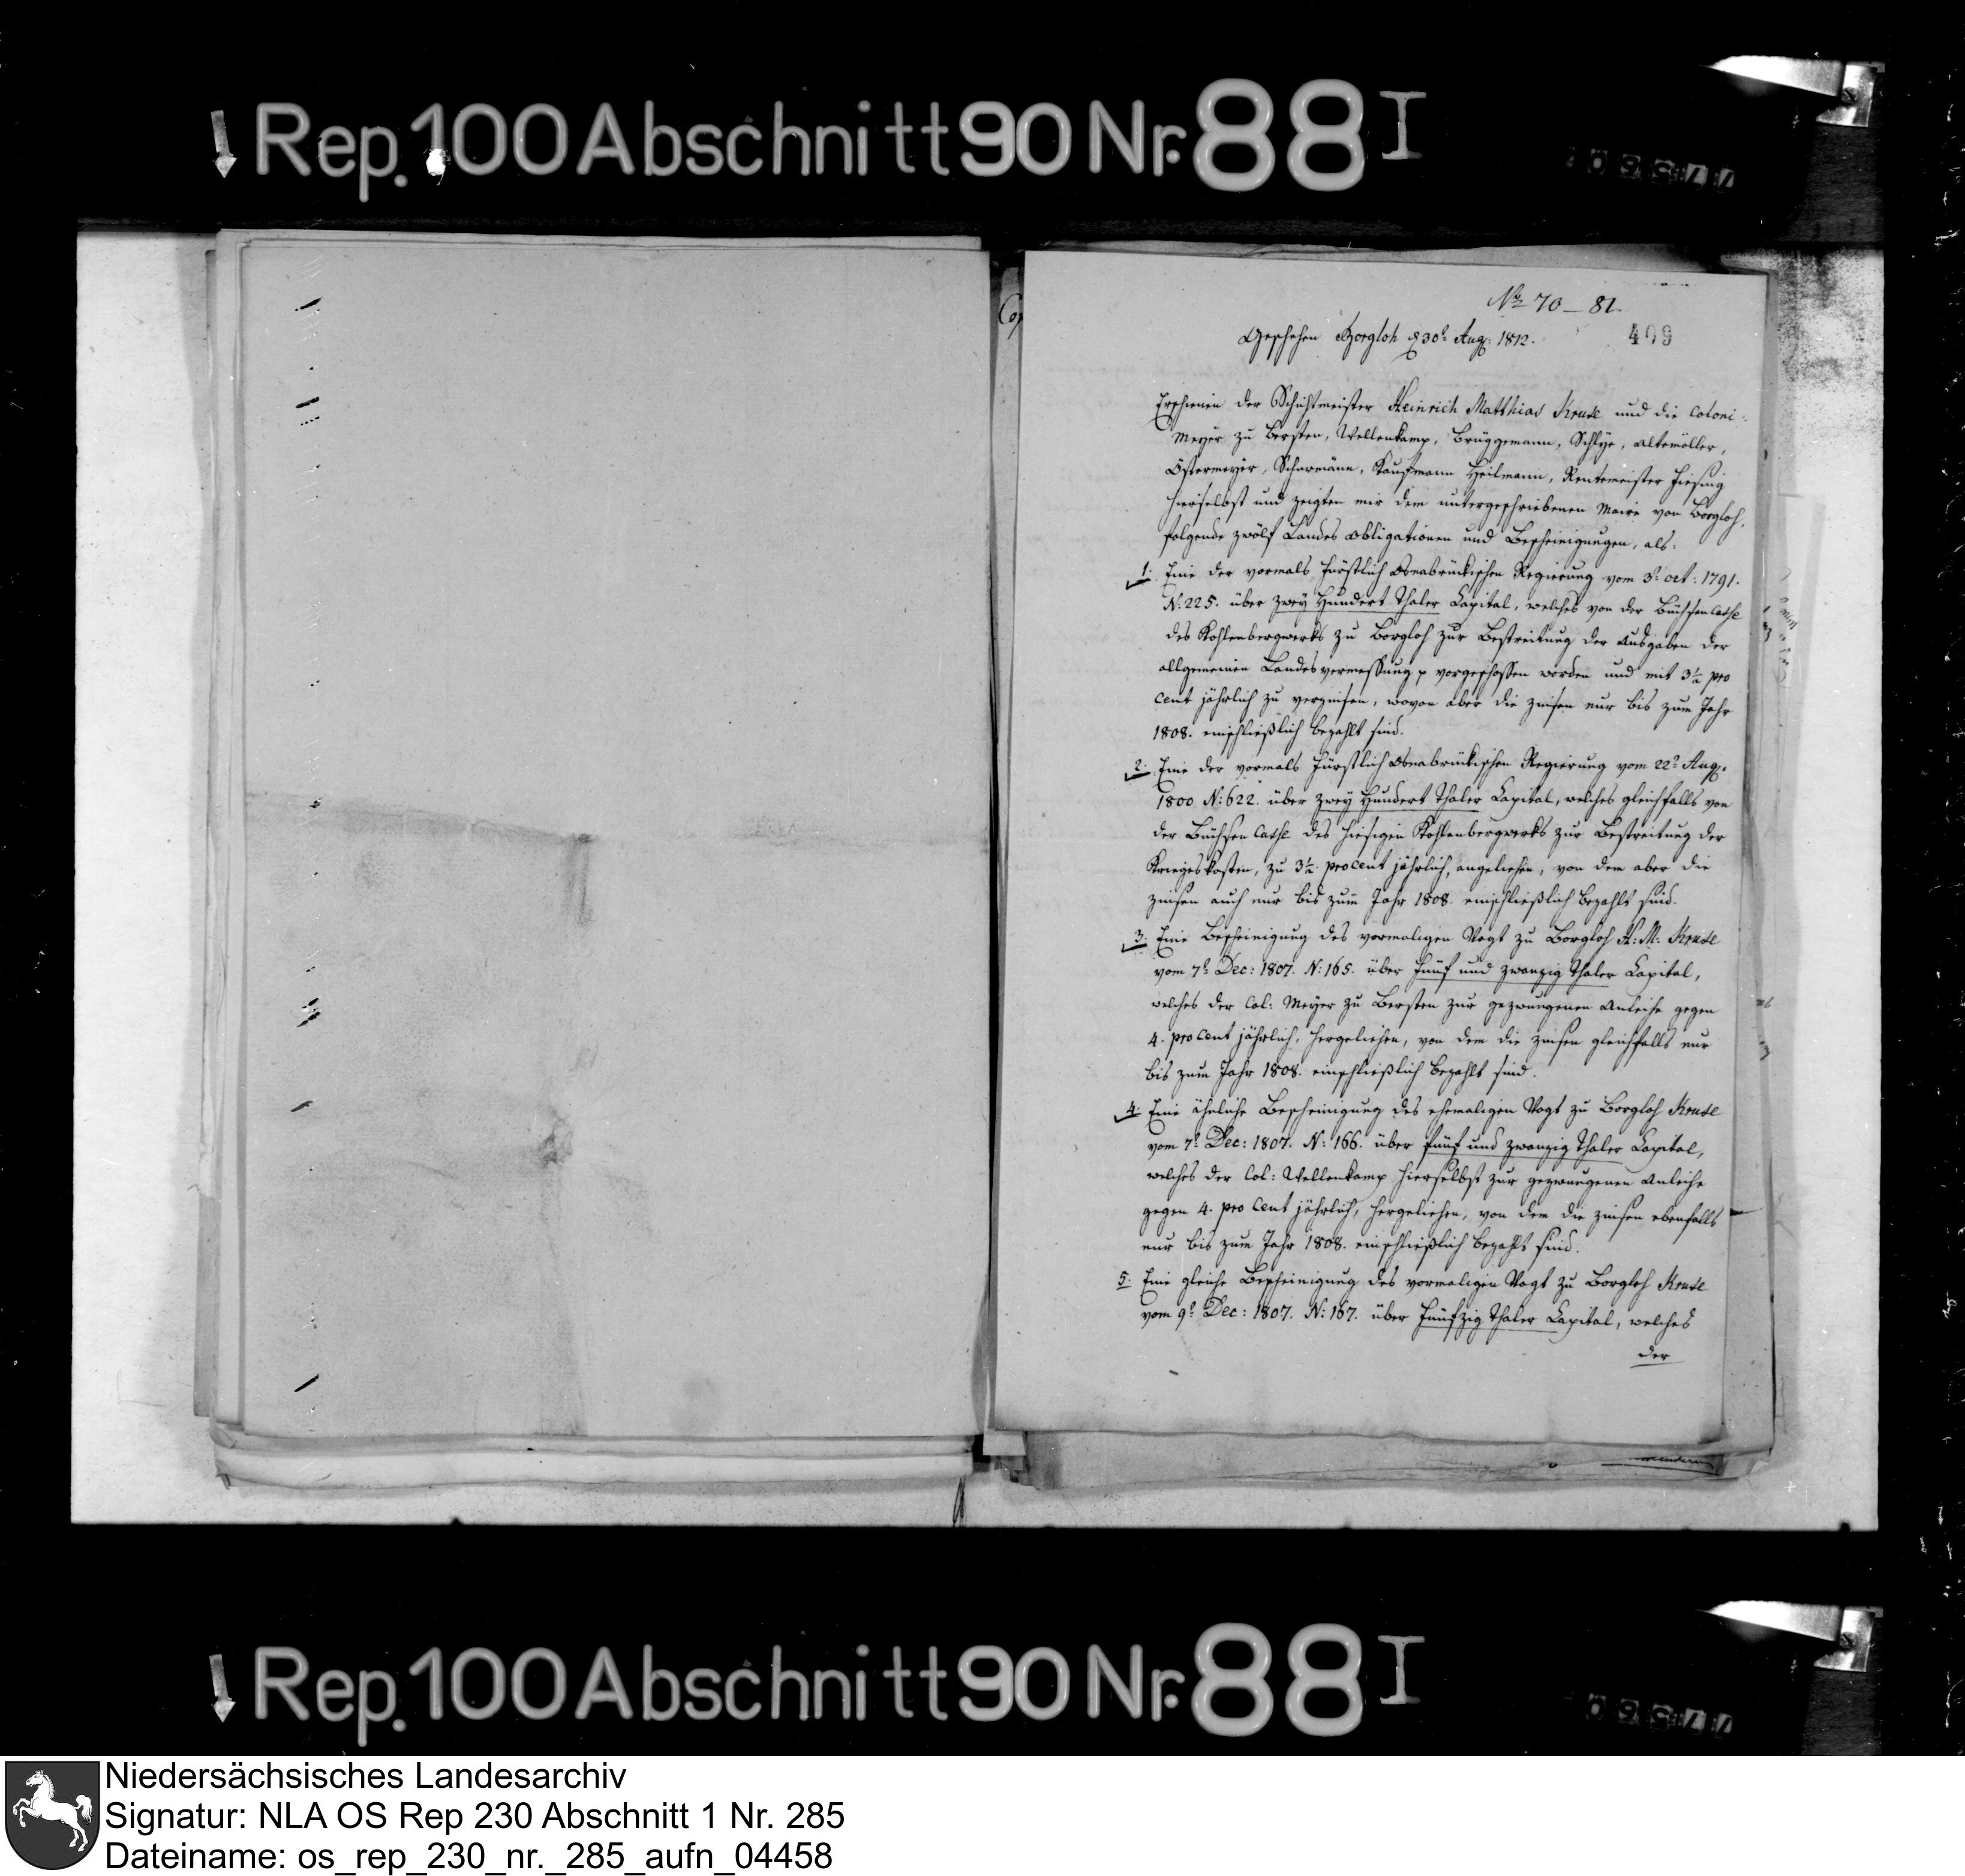 Rep. 100 Abschnitt 90 Nr. 88 I
No 70 - 81.
409
Geschehen Borgloh d 30t Aug. 1812.
Erschienen der Schichtmeister Heinrich Matthias Kruse und die Coloni:
Meyer zu Bersten, Wellenkamp, Brüggemann, Schlye, Altemöller,
Ostermeyer, Schormänn, Kaufmann Heilmann, Rentmeister
hierselbst und zeigten mir dem untergeschriebenen Maire von Borgloh,
folgende zwölf Landes Obligationen und Bescheinigungen, als:
1. Eine der vormals Fürstlich Osnabrückischen Regierung vom 3t oct: 1791.
N. 225. über zwey Hundert Thaler Capital, welches von der Büchsen Casse
des Kohlenbergwerks zu Borgloh zur Bestreitung der Ausgaben der
allgemeinen Landesvermessung p vorgeschossen worden und mit 3½ pro
cent jährlich zu verzinsen, wovon aber die Zinsen nur bis zum Jahr
1808. einschließlich bezahlt sind.
2. Eine der vormals Fürstlich Osnabrückischen Regierung vom 22t Aug.
1800 N: 622. über zwey Hundert Thaler Capital, welches gleichfalls von
der Büchsen Casse des hiesigen Kohlenbergwerks zur Bestreitung der
Kriegeskosten, zu 3½ procent jährlich, angeliehen, von dem aber die
Zinsen auch nur bis zum Jahr 1808. einschließlich bezahlt sind.
3. Eine Bescheinigung des vormaligen Vogt zu Borgloh H: M: Kruse
vom 7t Dec: 1807. N: 165. über Fünf und zwanzig Thaler Capital,
welches der Col: Meyer zu Bersten zur gezwungenen Anleihe gegen
4. pro Cent jährlich, hergeliehen, von dem die Zinsen gleichfalls nur
bis zum Jahr 1808. einschließlich bezahlt sind.
4. Eine ähnliche Bescheinigung des ehemaligen Vogt zu Borgloh Kruse
vom 7t Dec: 1807. N: 166. über fünf und zwanzig Thaler Capital,
welches der Col: Wellenkamp hierselbst zur gezwungenen Anleihe
gegen 4. pro Cent jährlich, hergeliehen, von dem die Zinsen ebenfalls
nur bis zum Jahr 1808. einschließlich bezahlt sind.
5. Eine gleiche Bescheinigung des vormaligen Vogt zu Borgloh Kruse
vom 9t Dec: 1807. N: 167. über Fünfzig Thaler Capital, welches
der
Rep. 100 Abschnitt 90 Nr. 88 I
Niedersächsisches Landesarchiv
Signatur: NLA OS Rep 230 Abschnitt 1 Nr. 285
Dateiname: os_rep_230_nr._285_aufn_04458